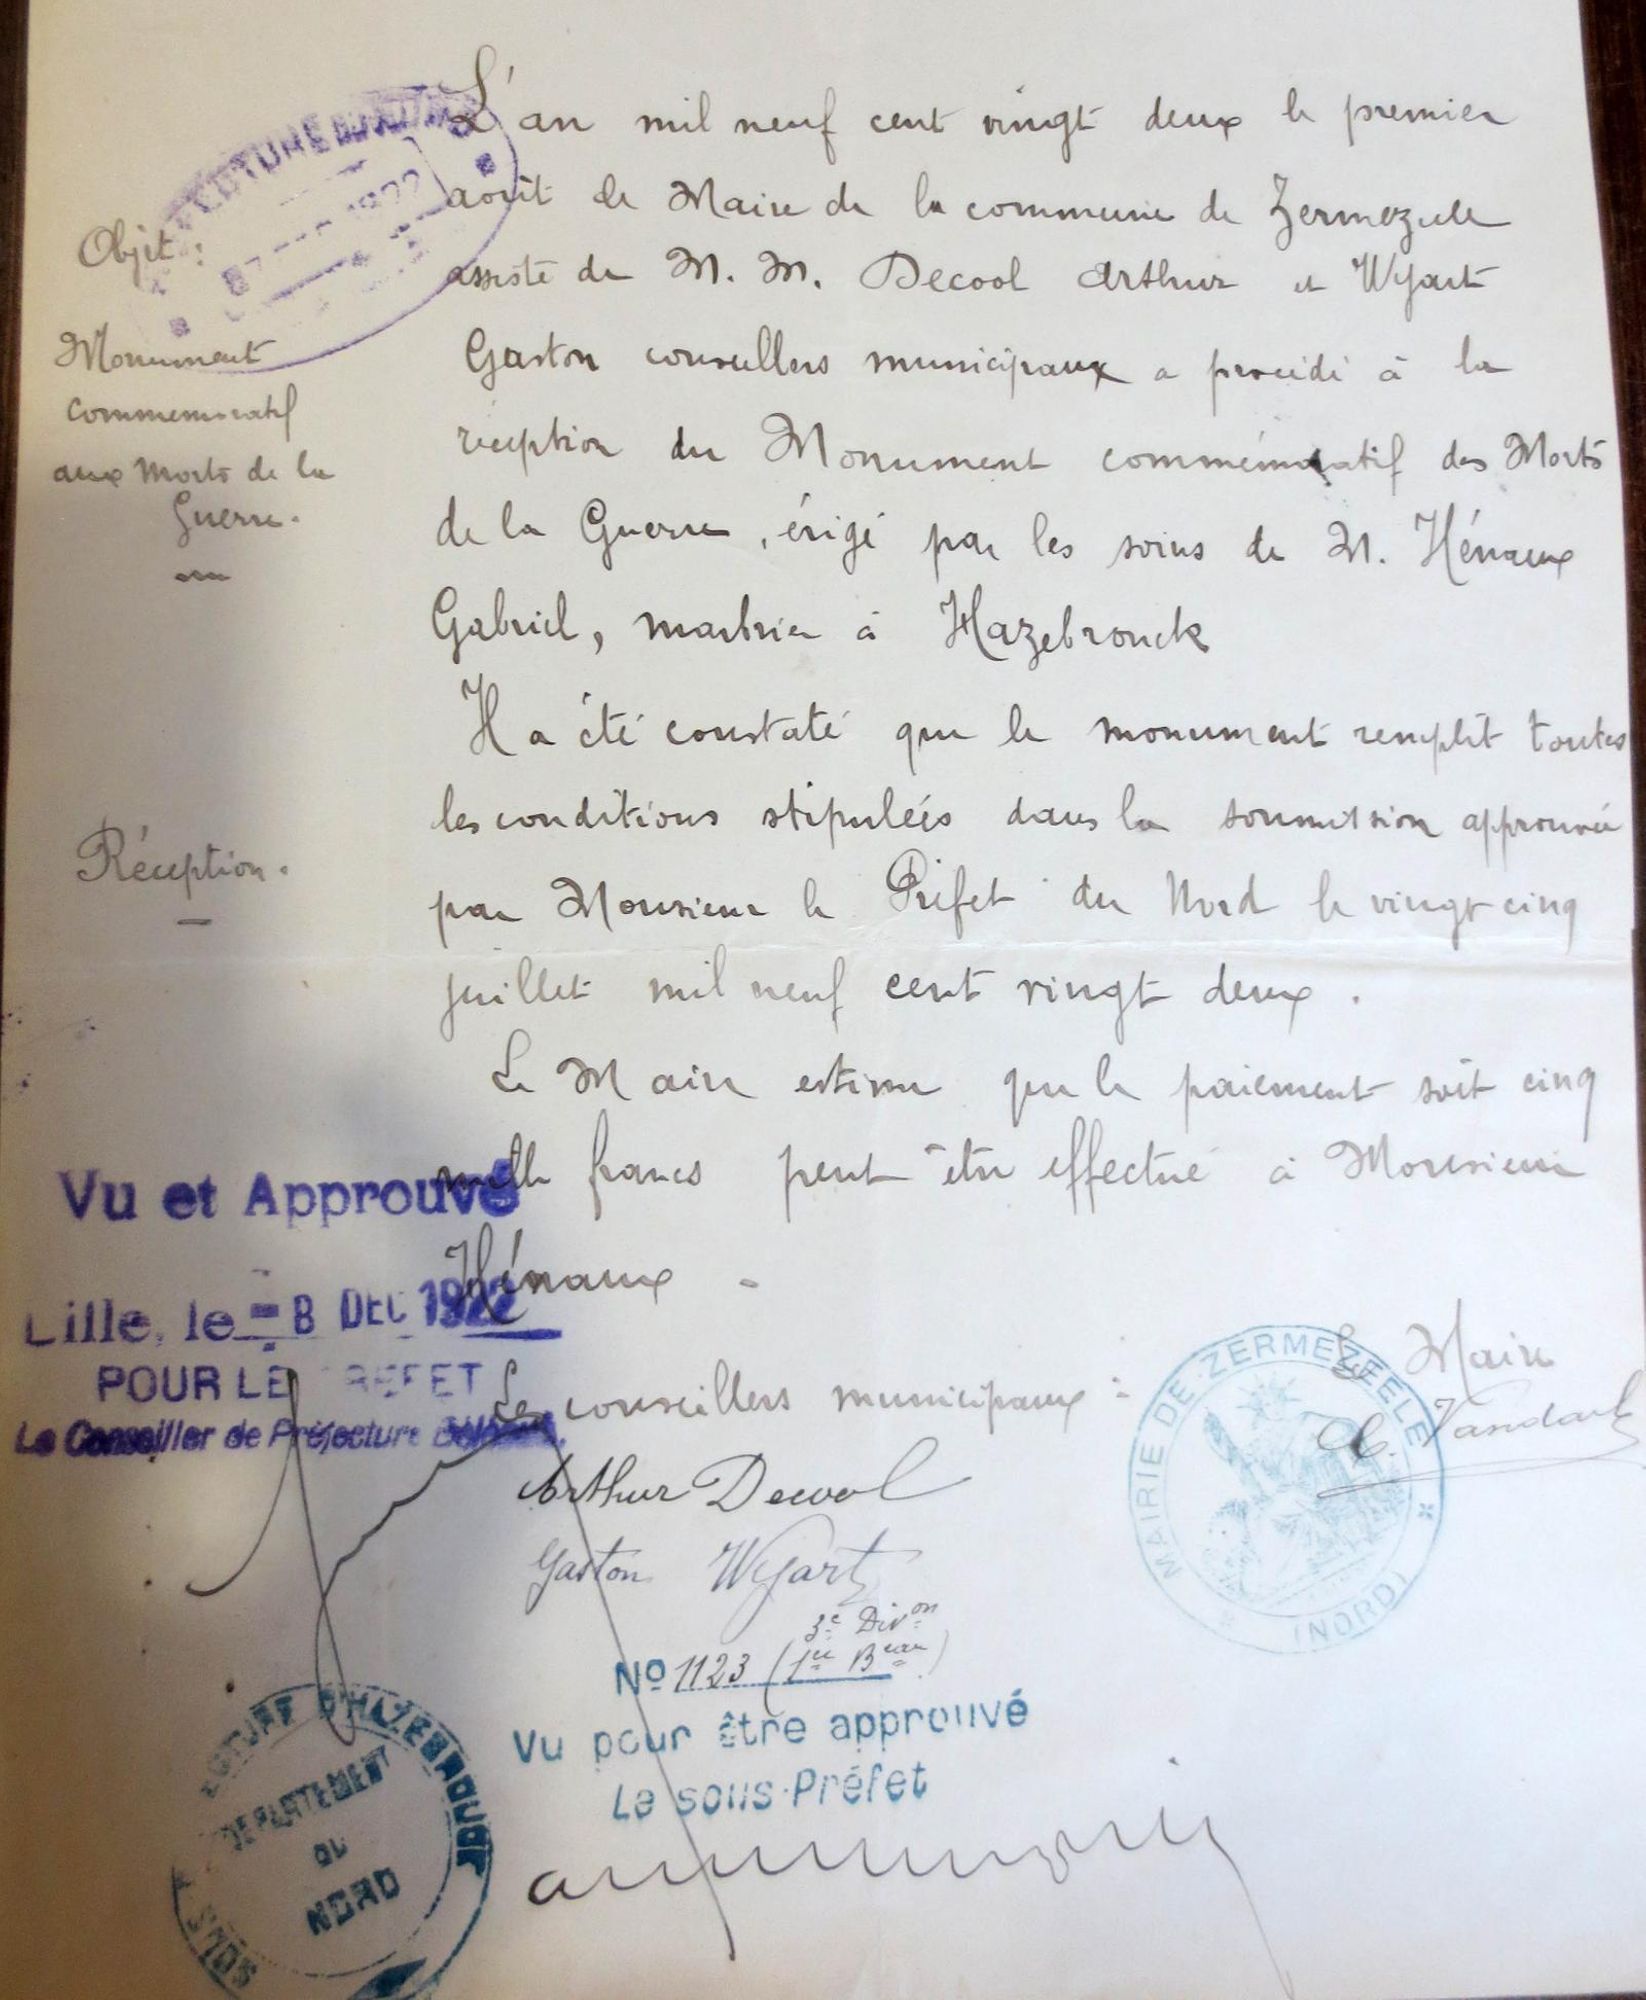 L'an mil neuf cent vingt deux le premier
août le Maire de la commune de Zermezeele
assisté de M. M. Decool Arthur et Wyart
Gaston conseillers municipaux a procédé à la
réception du Monument commémoratif des Morts
de la Guerre, érigé par les soins de M. Hénaux
Gabriel, marbrier à Hazebrouck
Il a été constaté que le monument remplit toutes
les conditions stipulées dans la soumission approuvée
par Monsieur le Préfet du Nord le vingt cinq
juillet mil neuf cent vingt deux.
Le Maire estime que le paiement soit cinq
mille francs peut être effectué à Monsieur
Hénaux -
Objet :
Monument
commémoratif
aux Morts de la
Guerre.
Réception.
Vu et Approuvé
Lille, le - 8 DEC 1922
POUR LE PREFET
Le Conseiller de Préfecture
Les conseillers municipaux :
Arthur Decool
Gaston Wyart
Le Maire
MAIRIE DE ZERMEZEELE
(NORD)
3e Divon
No 1123 (1er Beau)
Vu pour être approuvé
Le sous-Préfet
SOUS PREFECTURE D'HAZEBROUCK
DEPARTEMENT
DU
NORD